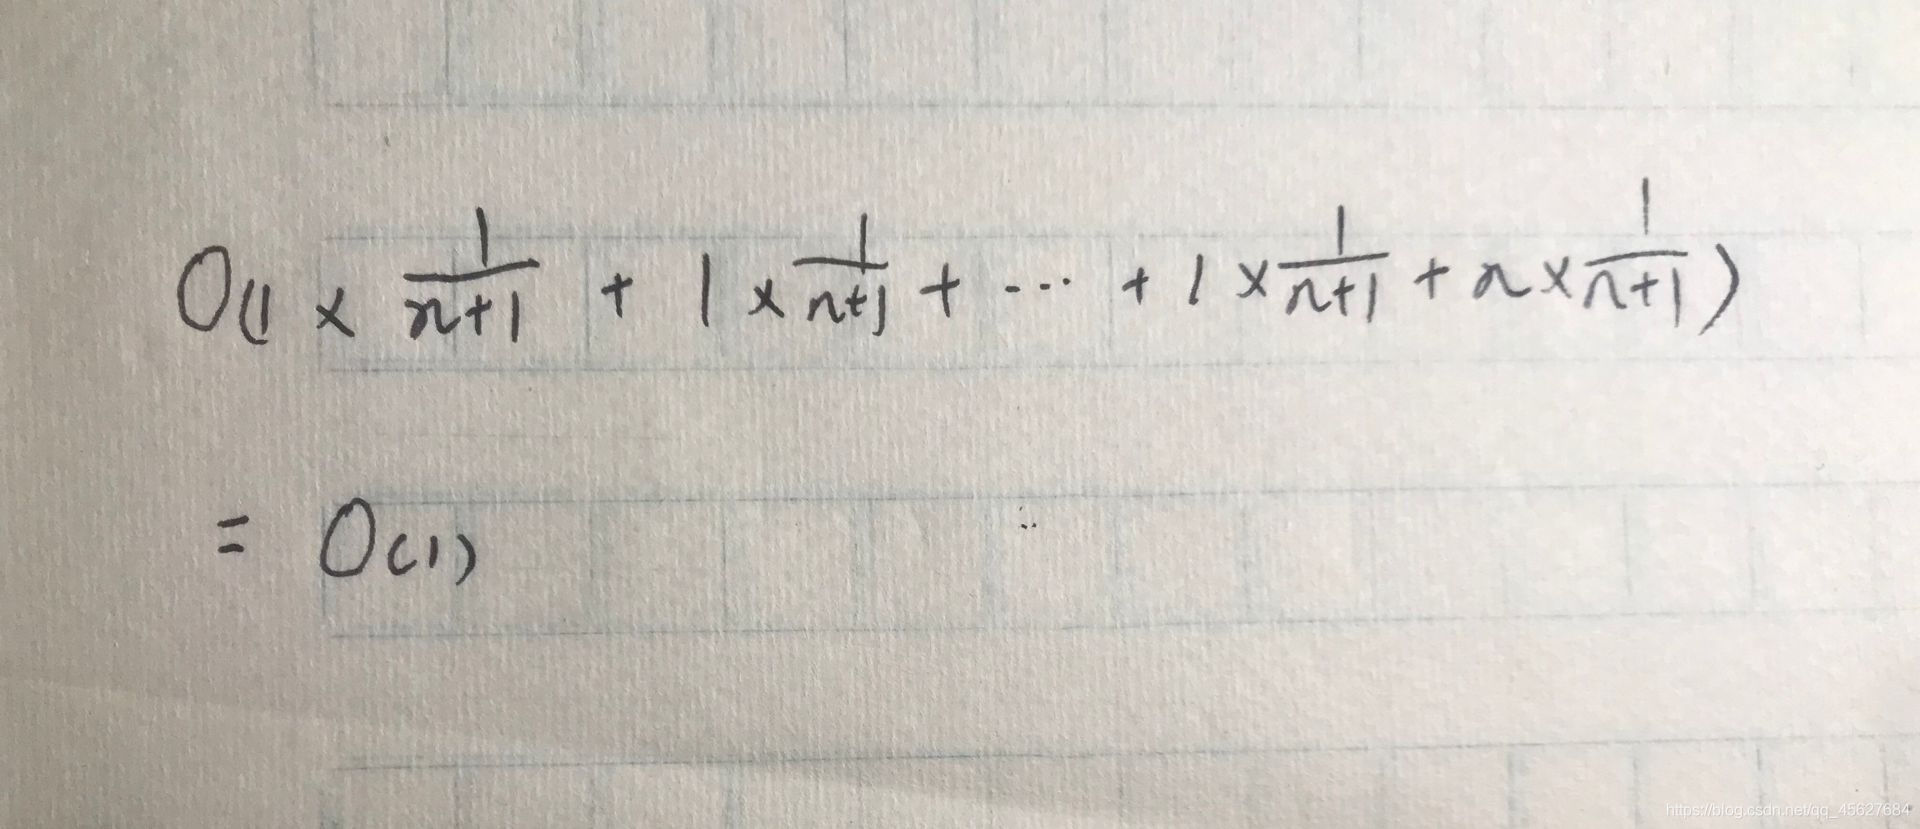 O(1 × 1/(n+1) + 1 × 1/(n+1) + ... + 1 × 1/(n+1) + n × 1/(n+1))
= O(1)
https://blog.csdn.net/qq_45627684